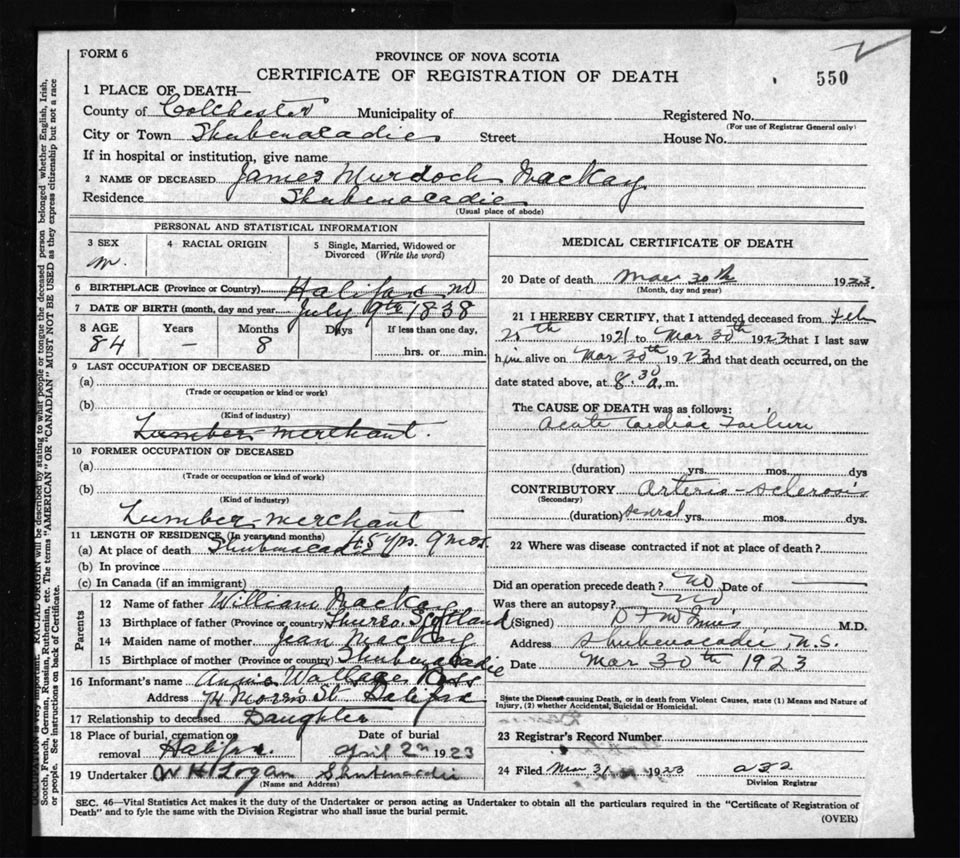 FORM 6
PROVINCE OF NOVA SCOTIA
CERTIFICATE OF REGISTRATION OF DEATH
550
1 PLACE OF DEATH—
County of Colchester Municipality of Registered No.
(For use of Registrar General only)
City or Town Shubenacadie Street House No.
If in hospital or institution, give name
2 NAME OF DECEASED James Murdoch MacKay
Residence Shubenacadie
(Usual place of abode)
PERSONAL AND STATISTICAL INFORMATION
3 SEX
m.
4 RACIAL ORIGIN
5 Single, Married, Widowed or
Divorced (Write the word)
6 BIRTHPLACE (Province or Country) Halifax
7 DATE OF BIRTH (month, day and year) July 9th 1838
8 AGE Years Months Days If less than one day,
84 – 8 hrs. or min.
9 LAST OCCUPATION OF DECEASED
(a)
(Trade or occupation or kind or work)
(b)
(Kind of industry)
Lumber merchant.
10 FORMER OCCUPATION OF DECEASED
(a)
(Trade or occupation or kind of work)
(b)
(Kind of industry)
Lumber-merchant
11 LENGTH OF RESIDENCE (In years and months)
(a) At place of death Shubenacadie 45 yrs. 9 mos.
(b) In province
(c) In Canada (if an immigrant)
Parents
12 Name of father William MacKay
13 Birthplace of father (Province or country) Thurso. Scotland
14 Maiden name of mother Jean MacKay
15 Birthplace of mother (Province or country) Shubenacadie
16 Informant's name Annie Wallace Ross
Address 74 Morris St Halifax
17 Relationship to deceased Daughter
18 Place of burial, cremation or Date of burial
removal Halifax. April 2nd 1923
19 Undertaker W H Logan Shubenacadie
(Name and Address)
MEDICAL CERTIFICATE OF DEATH
20 Date of death Mar 30th 1923
(Month, day and year)
21 I HEREBY CERTIFY, that I attended deceased from Feb
25th 1921 to Mar 30th 1923 that I last saw
him alive on Mar 30th 1923 and that death occurred, on the
date stated above, at 8.30 a. m.
The CAUSE OF DEATH was as follows:
Acute Cardiac Failure
(duration) yrs. mos. dys
CONTRIBUTORY Arterio-sclerosis
(Secondary)
(duration) several yrs. mos. dys.
22 Where was disease contracted if not at place of death?
Did an operation precede death? No Date of
Was there an autopsy? No
(Signed) M.D.
Address Shubenacadie N.S.
Date Mar 30th 1923
State the Disease causing Death, or in death from Violent Causes, state (1) Means and Nature of
Injury, (2) whether Accidental, Suicidal or Homicidal.
23 Registrar's Record Number
24 Filed Mar 31 1923
Division Registrar
SEC. 46—Vital Statistics Act makes it the duty of the Undertaker or person acting as Undertaker to obtain all the particulars required in the "Certificate of Registration of
Death" and to fyle the same with the Division Registrar who shall issue the burial permit.
(OVER)
RACIAL ORIGIN will be described by stating to what people or tongue the deceased person belonged whether English, Irish,
Scotch, French, German, Russian, Ruthenian, etc. The terms "AMERICAN" OR "CANADIAN" MUST NOT BE USED as they express citizenship but not a race
or people. See instructions on back of Certificate.